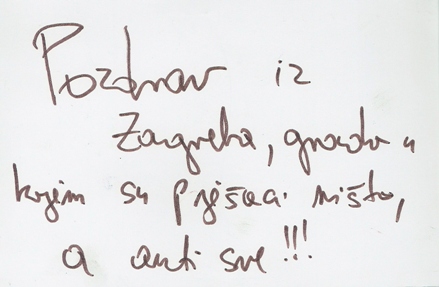 Pozdrav iz
Zagreba, gradu u
kojem su pješaci ništa,
a auti sve!!!